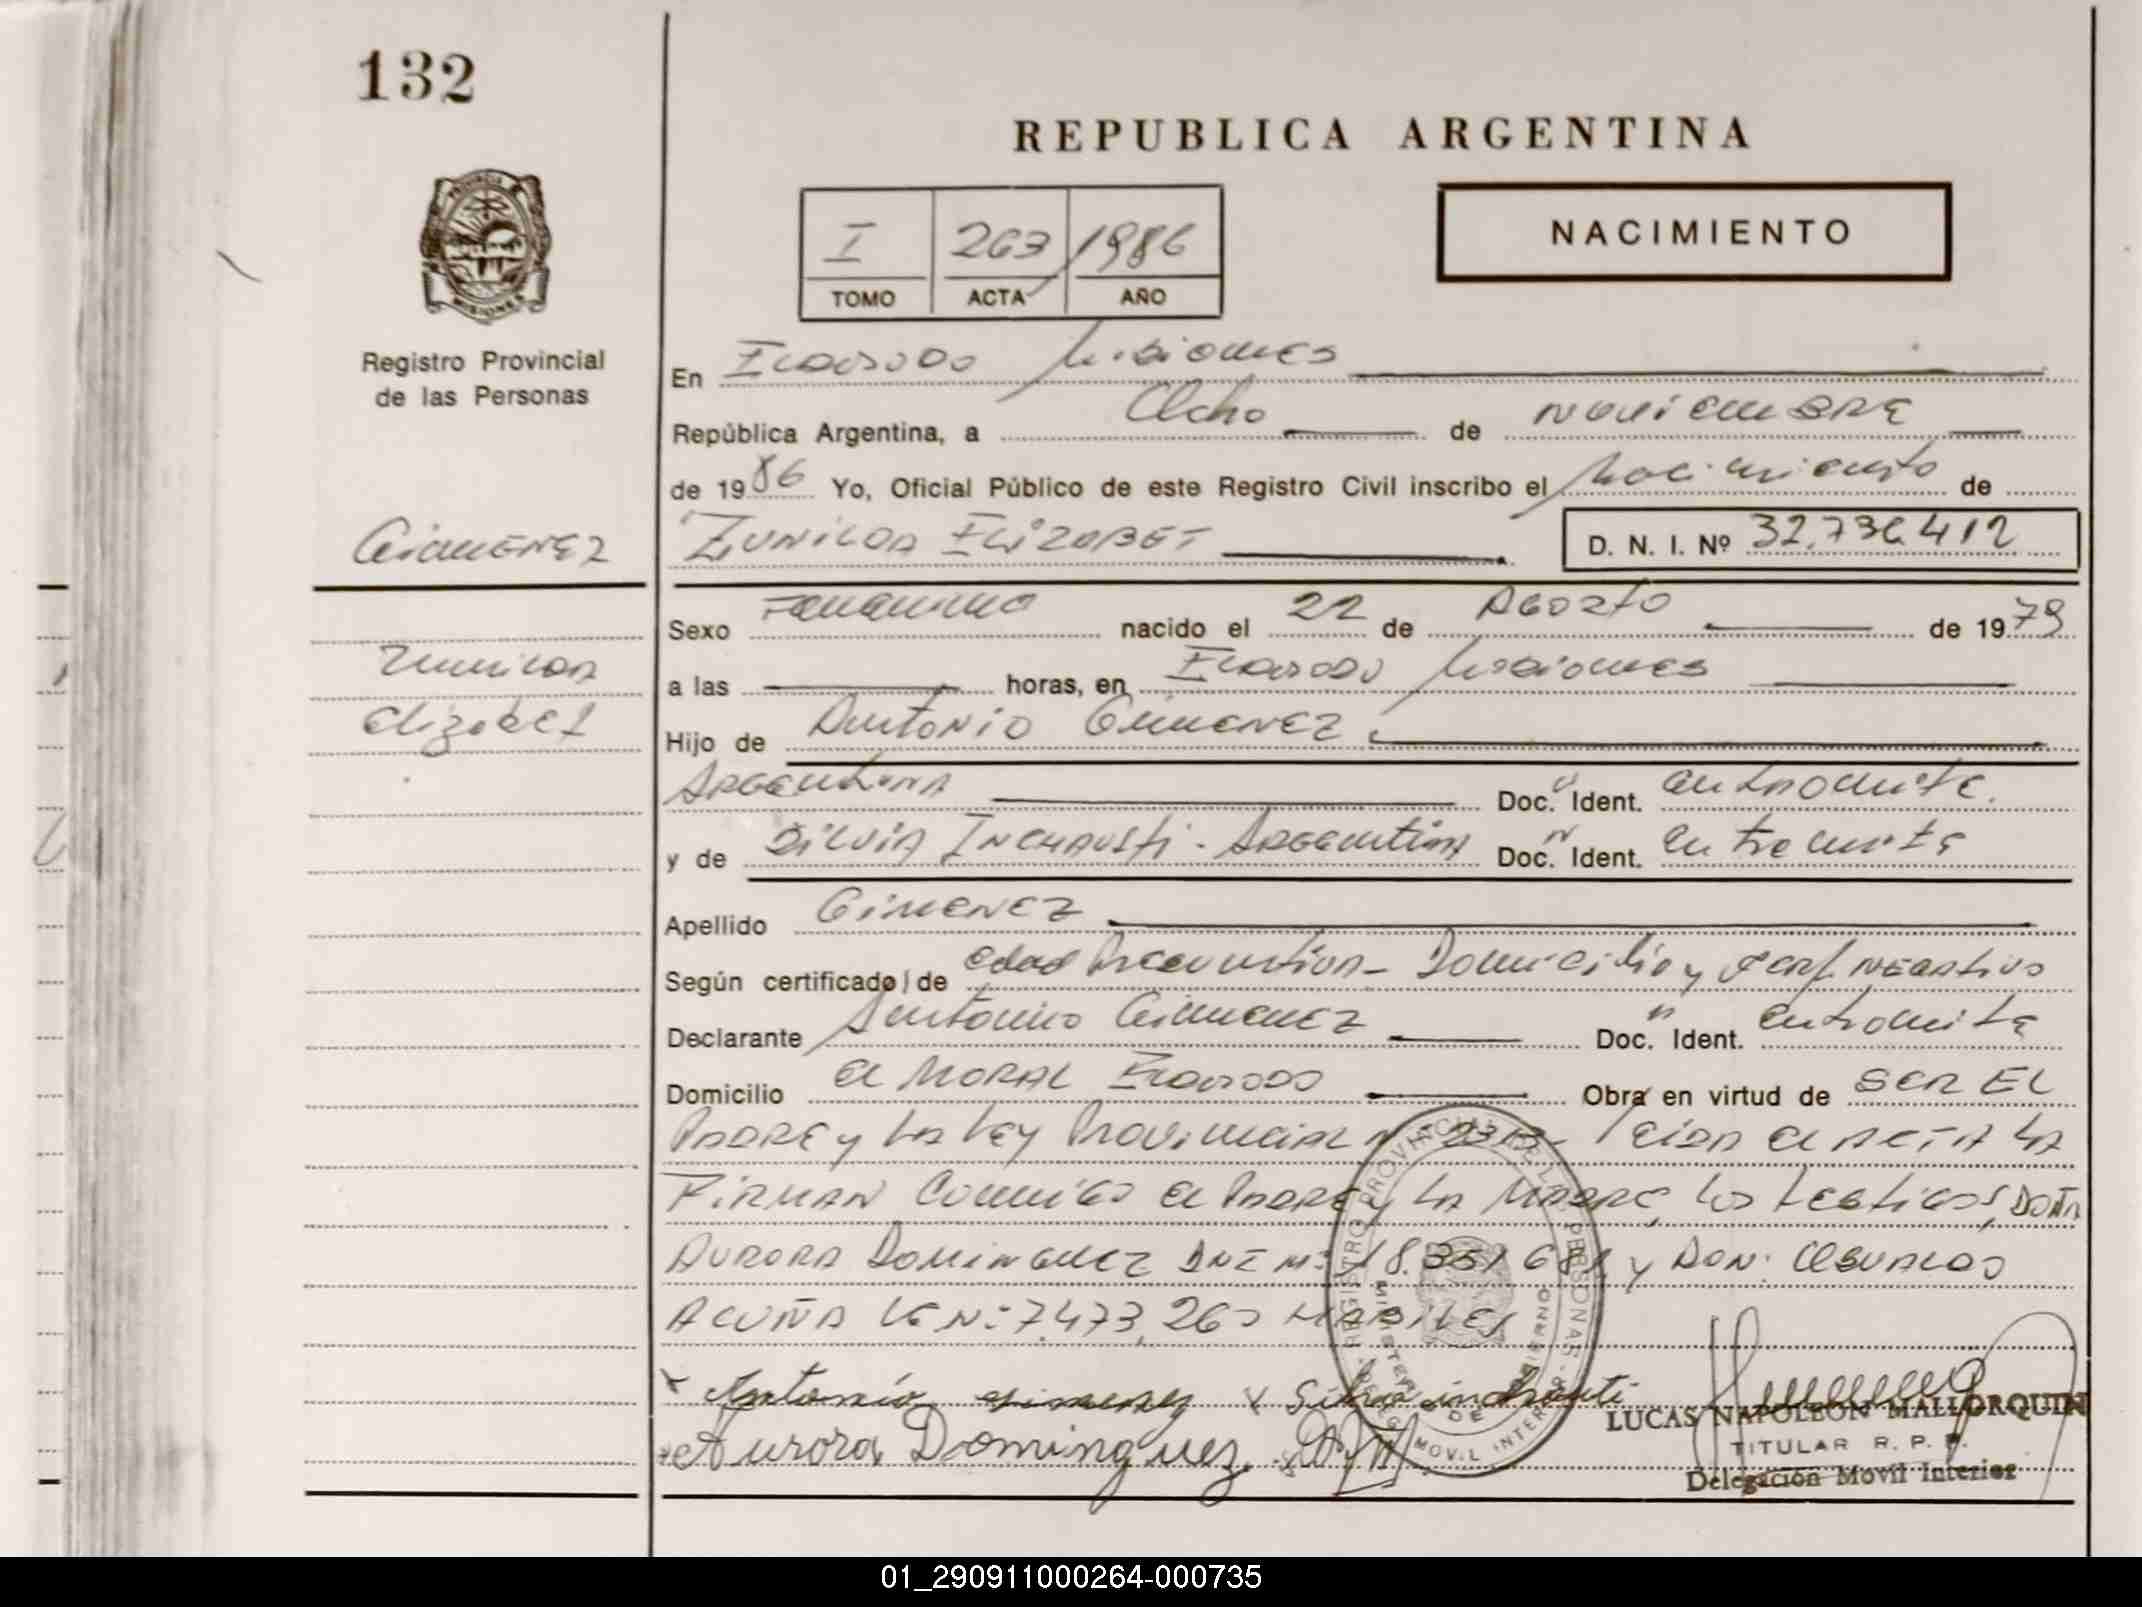 132
REPUBLICA ARGENTINA
I 263 1986
TOMO ACTA AÑO
NACIMIENTO
PROVINCIA
MISIONES
Registro Provincial
de las Personas
Gimenez
Zunilda
Elizabet
En Eldorado Misiones
República Argentina, a Ocho de noviembre
de 1986 Yo, Oficial Público de este Registro Civil inscribo el Nacimiento de
Zunilda Elizabet D. N. I. Nº 32.736.412
Sexo Femenino nacido el 22 de Agosto de 1979
a las horas, en Eldorado Misiones
Hijo de Antonio Gimenez
Argentina Doc. Ident. en tramite.
y de Silvia Inchausti - Argentina Doc. Ident. en tramite
Apellido Gimenez
Según certificado/ de edad Presuntiva - Domicilio y negativo
Declarante Antonio Gimenez Doc. Ident. en tramite
Domicilio el Moral Eldorado Obra en virtud de ser el
Padre y la Ley Provincial Nº Leida el acta la
Firman conmigo el Padre y la Madre, los testigos, Doña
Aurora Dominguez DNI Nº 18.351.681 y Don: Osvaldo
Acuña LE Nº 7.473.260 Habiles
Antonio gimenez Silvia inchauti
Aurora Dominguez
LUCAS NAPOLEON MALLORQUIN
TITULAR R. P. P.
Delegación Movil Interior
01_290911000264-000735